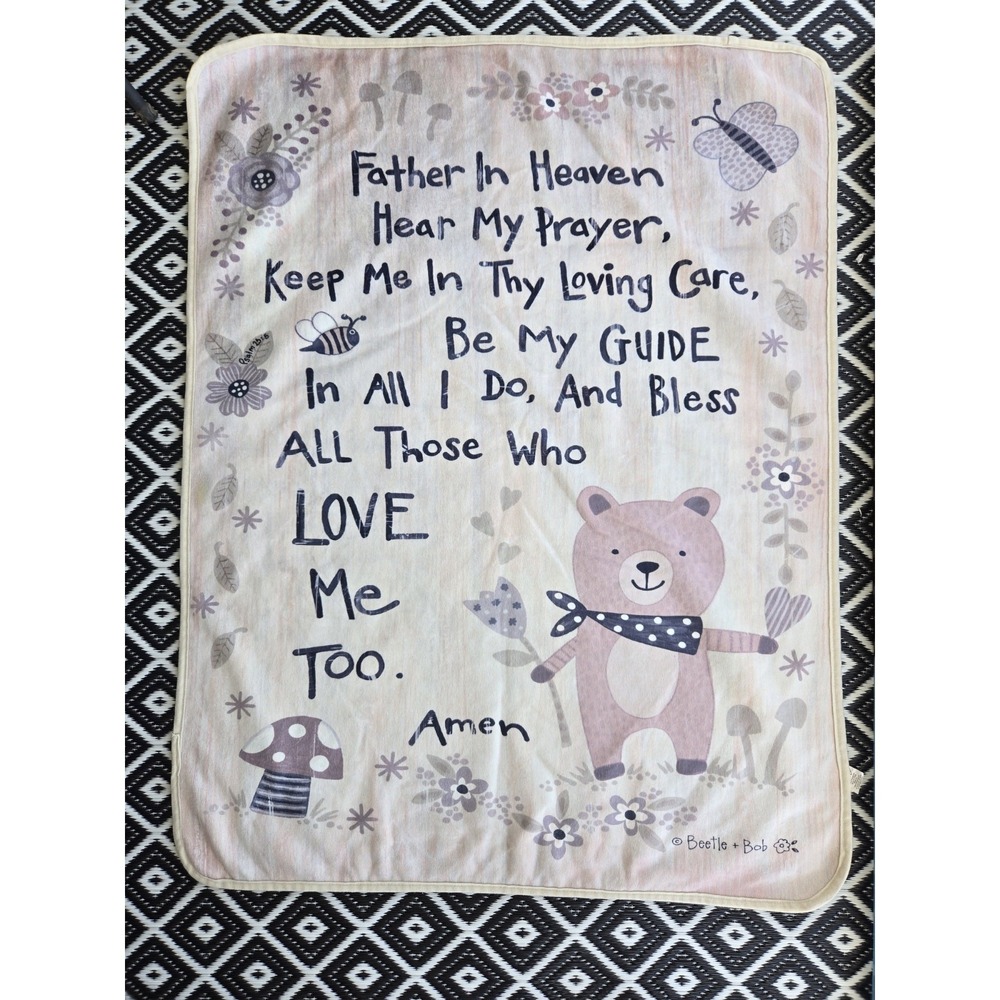 Father In Heaven
Hear My Prayer,
Keep Me In Thy Loving Care,
Be My GUIDE
In All I Do, And Bless
ALL Those Who
LOVE
Me
Too.
Amen
© Beetle + Bob